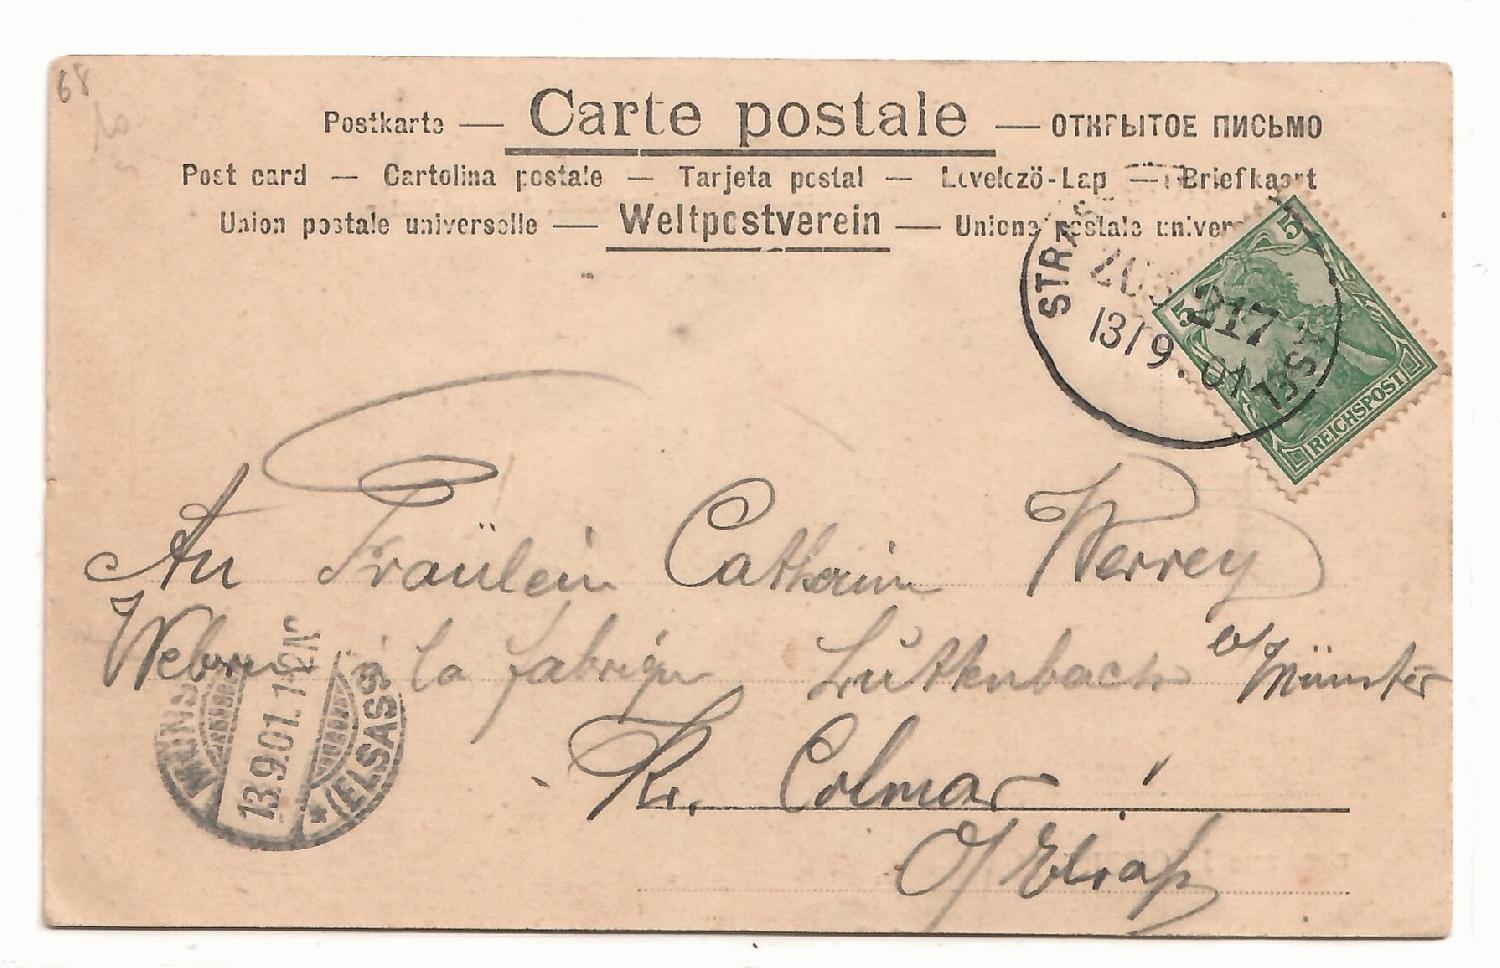 68
Postkarte — Carte postale — ОТКРЫТОЕ ПИСЬМО
Post card — Cartolina postale — Tarjeta postal — Levelező-Lap — Briefkaart
Union postale universelle — Weltpostverein — Unione postale univer
STRA
ZUG 217
13/9.01
5
5
REICHSPOST
An Fräulein Catherin Werrey
à la fabrique Luttenbach b/ Münster
Kr. Colmar
O/ Elsaß
13.9.01.1-2N
* (ELSASS)